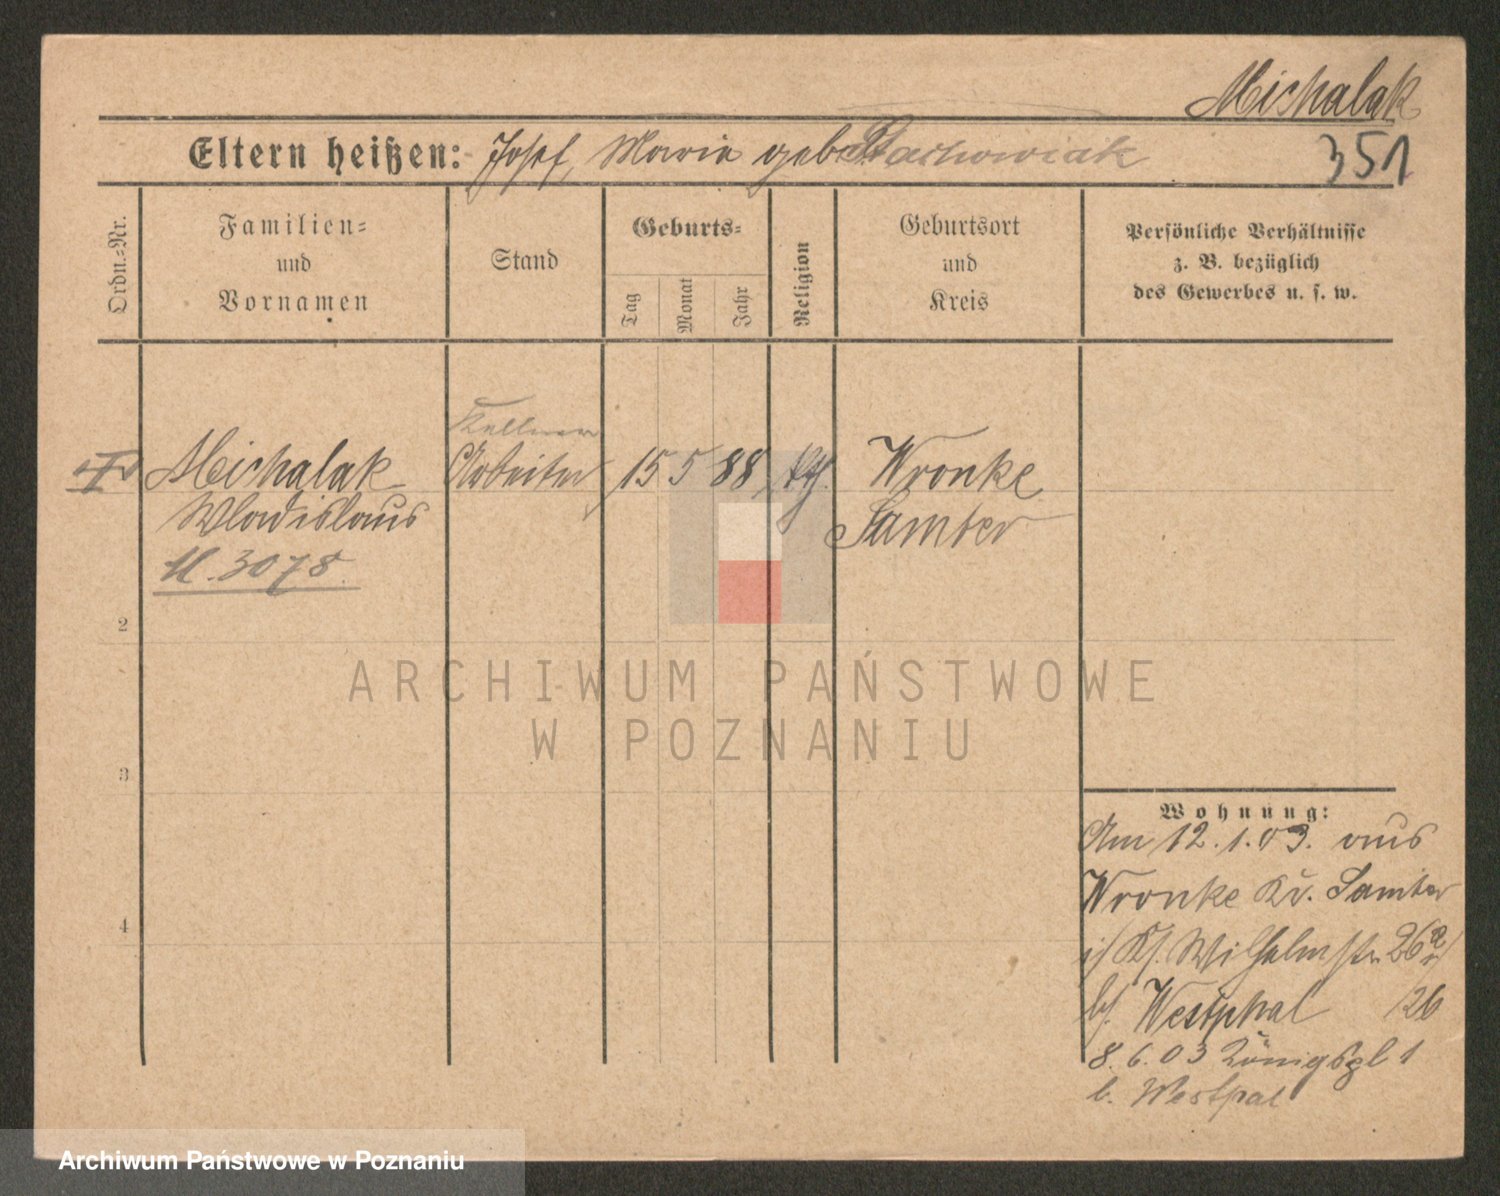 Michalak
351
Eltern heißen: Josef, Maria geb. Stachowiak
Ordn.=Nr.
Familien=
und
Vornamen
Stand
Geburts=
Tag
Monat
Jahr
Religion
Geburtsort
und
Kreis
Persönliche Verhältnisse
z. B. bezüglich
des Gewerbes u. s. w.
Kellner
I Michalak Arbeiter 15 5 88 kth. Wronke
Wladislaus Samter
M. 3078.
2
3
4
Wohnung:
Am 12.1.03. aus
Wronke Kr. Samter
Wilhelmstr. 26
b/. Westphal 126
8.6.03 Königspl 1
b. Westpal
ARCHIWUM PAŃSTWOWE
W POZNANIU
Archiwum Państwowe w Poznaniu